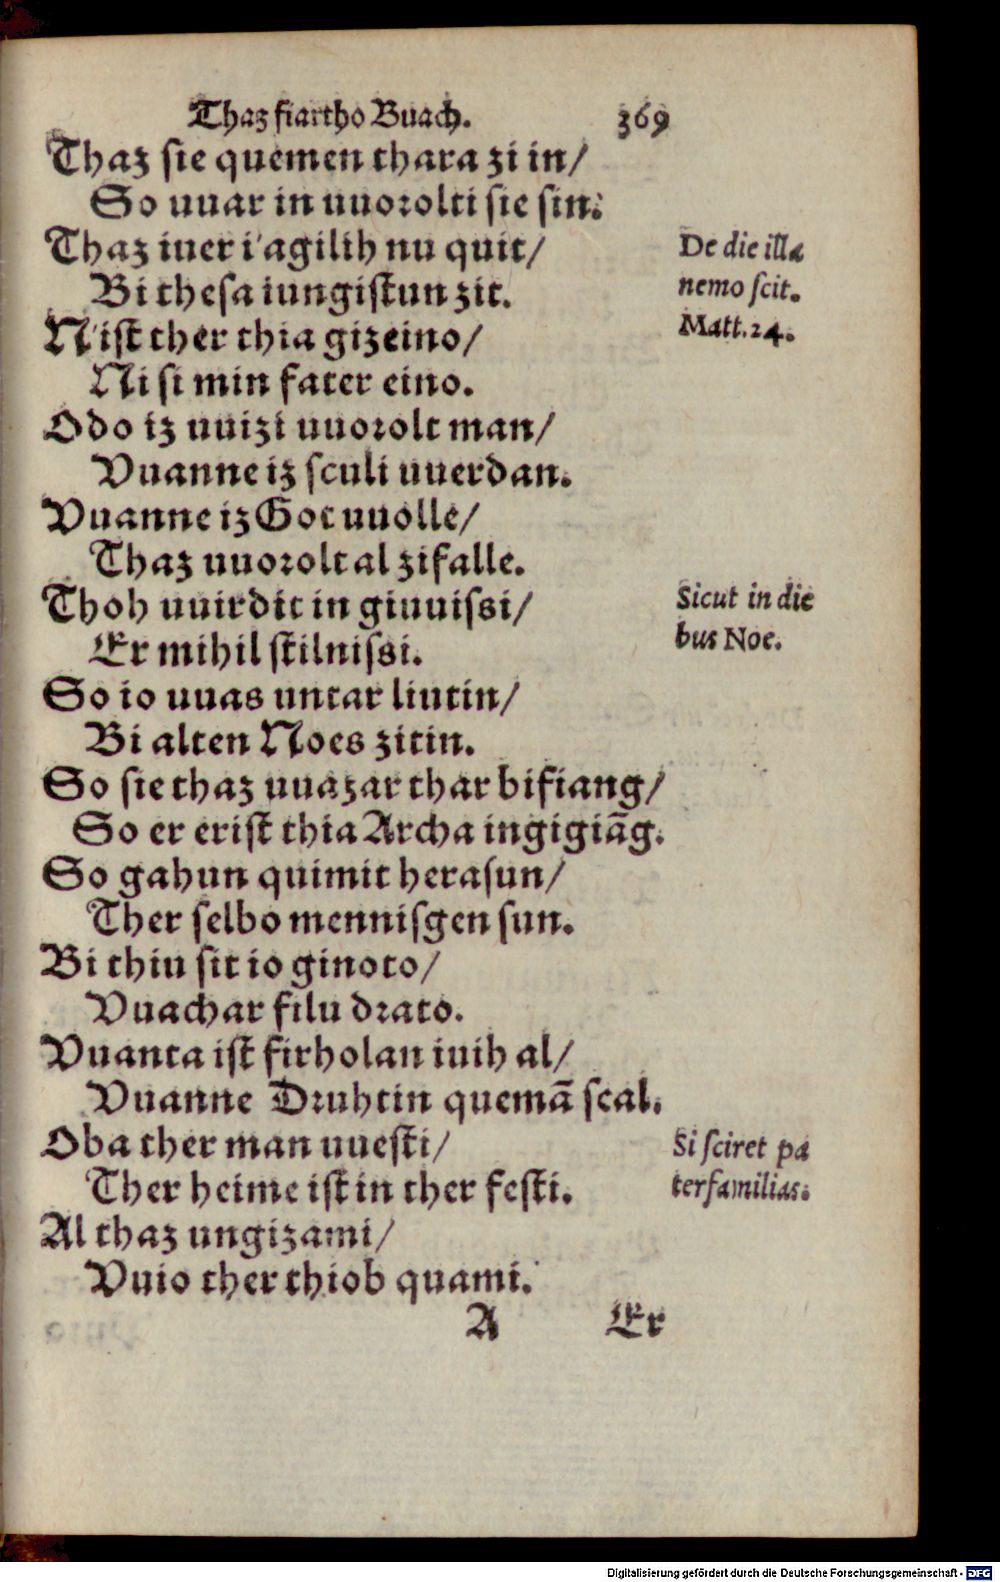 Thaz fiartho Buach. 369
Thaz sie quemen thara zi in/
So uuar in uuorolti sie sin.
Thaz iuer i'agilih nu quit/
Bi thesa iungistun zit.
N'ist ther thia gizeino/
Ni si min fater eino.
Odo iz uuizi uuorolt man/
Vuanne iz sculi uuerdan.
Vuanne iz Got uuolle/
Thaz uuorolt al zifalle.
Thoh uuirdit in giuuissi/
Er mihil stilnissi.
So io uuas untar liutin/
Bi alten Noes zitin.
So sie thaz uuazar thar bifiang/
So er erist thia Archa ingigiãg.
So gahun quimit herasun/
Ther selbo mennisgen sun.
Bi thiu sit io ginoto/
Vuachar filu drato.
Vuanta ist firholan iuih al/
Vuanne Druhtin quemã scal.
Oba ther man uuesti/
Ther heime ist in ther festi.
Al thaz ungizami/
Vuio ther thiob quami.
A Er
De die illa
nemo scit.
Matt.24.
Sicut in die
bus Noe.
Si sciret pa
terfamilias.
Digitalisierung gefördert durch die Deutsche Forschungsgemeinschaft - DFG